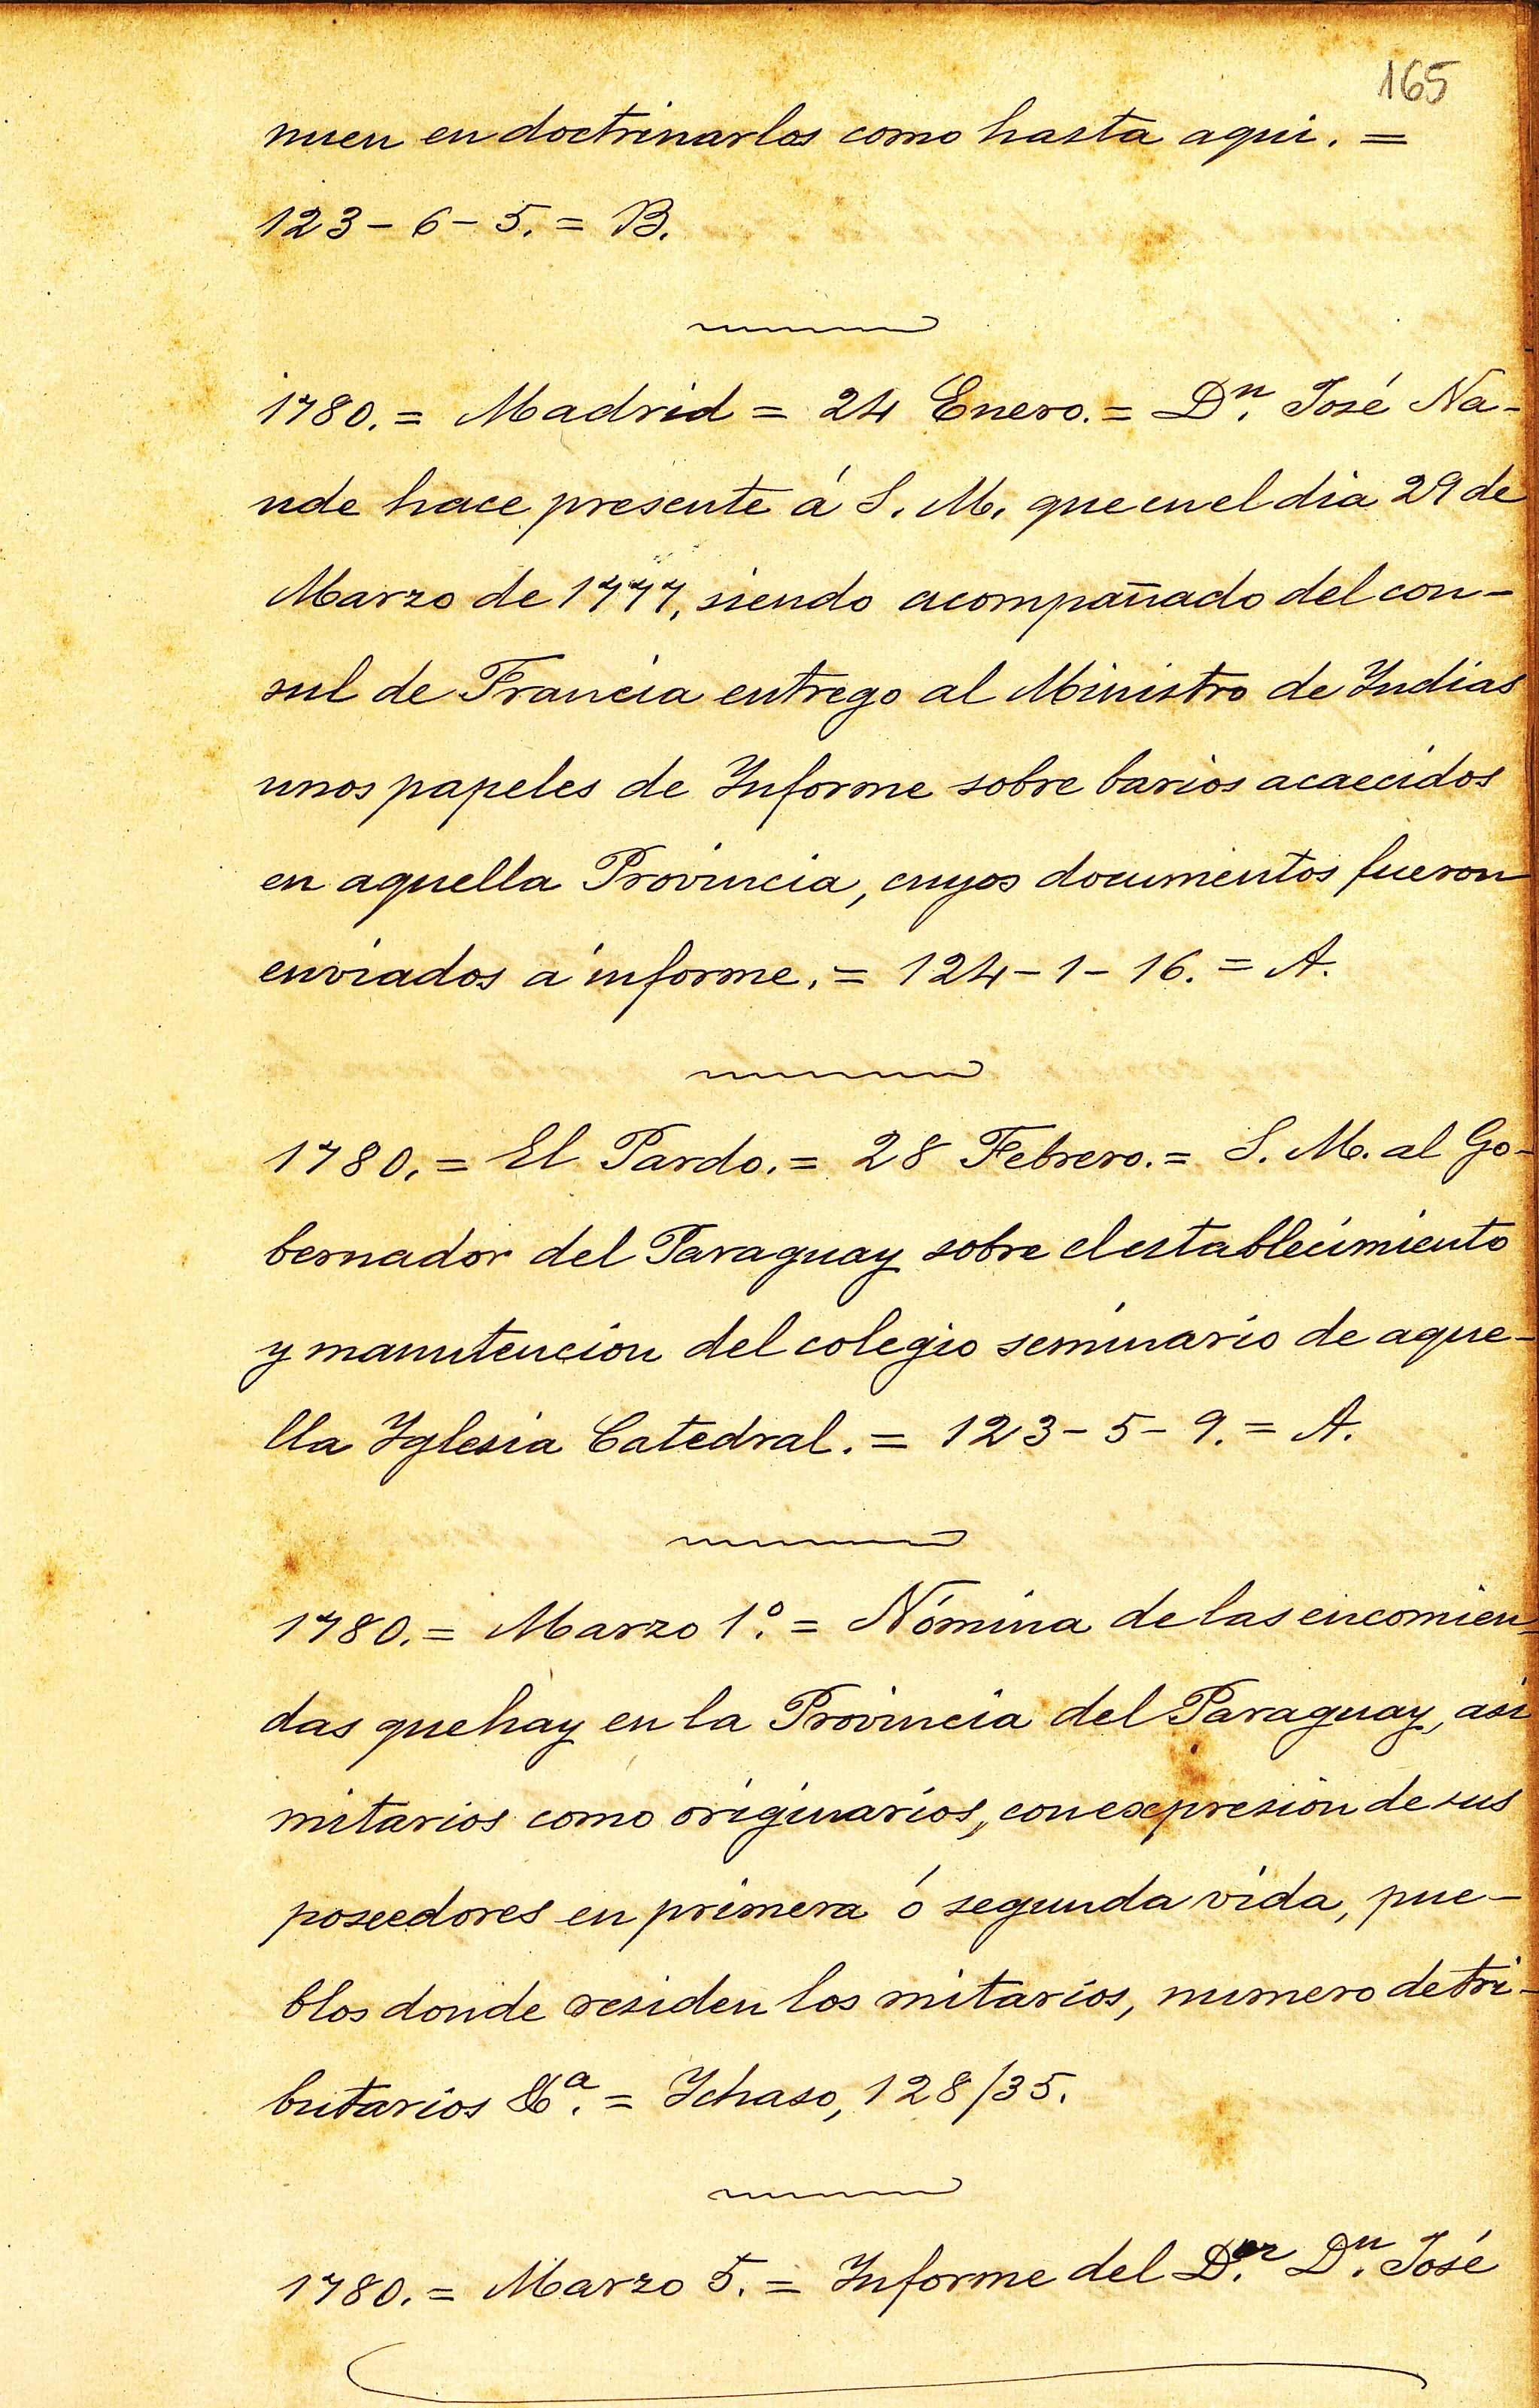 165
nuen en doctrinarlos como hasta aqui. =
123 - 6 - 5. = B.
1780. = Madrid = 24 Enero. = Dⁿ. José Na-
nde hace presente á S. M. que en el dia 29 de
Marzo de 1777, siendo acompañado del con-
sul de Francia entrego al Ministro de Indias
unos papeles de Informe sobre barios acaecidos
en aquella Provincia, cuyos documentos fueron
enviados á informe. = 124 - 1 - 16. = A.
1780. = El Pardo. = 28 Febrero. = S. M. al Go-
bernador del Paraguay sobre el establecimiento
y manutencion del colegio seminario de aque-
lla Iglesia Catedral. = 123 - 5 - 9. = A.
1780. = Marzo 1º. = Nómina de las encomien-
das que hay en la Provincia del Paraguay, asi
mitarios como originarios, con expresion de sus
poseedores en primera ó segunda vida, pue-
blos donde residen los mitarios, numero de tri-
butarios &ª. = Ichaso, 128/35.
1780. = Marzo 5. = Informe del D.ᵒʳ Dⁿ. José